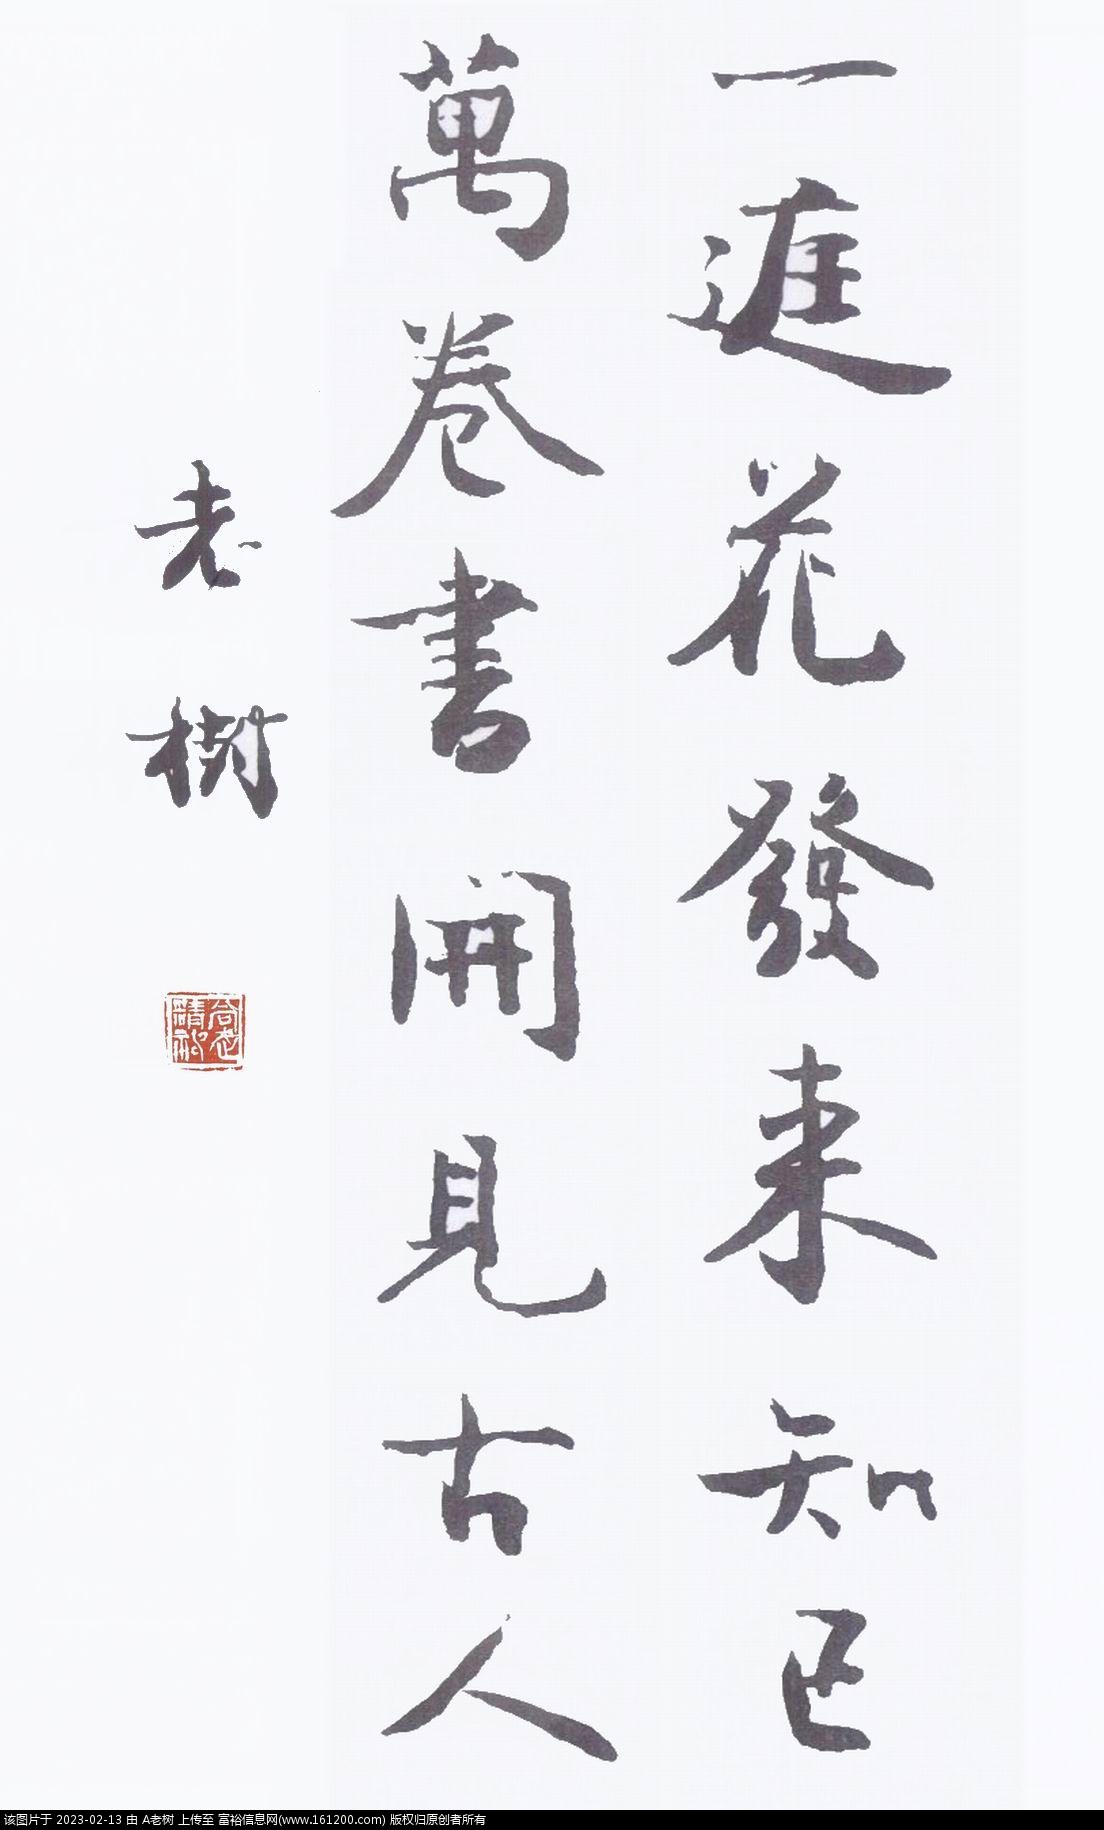 一庭花發来知己
萬卷書開見古人
老樹
该图片于 2023-02-13 由 A老树 上传至 富裕信息网(www.161200.com) 版权归原创者所有